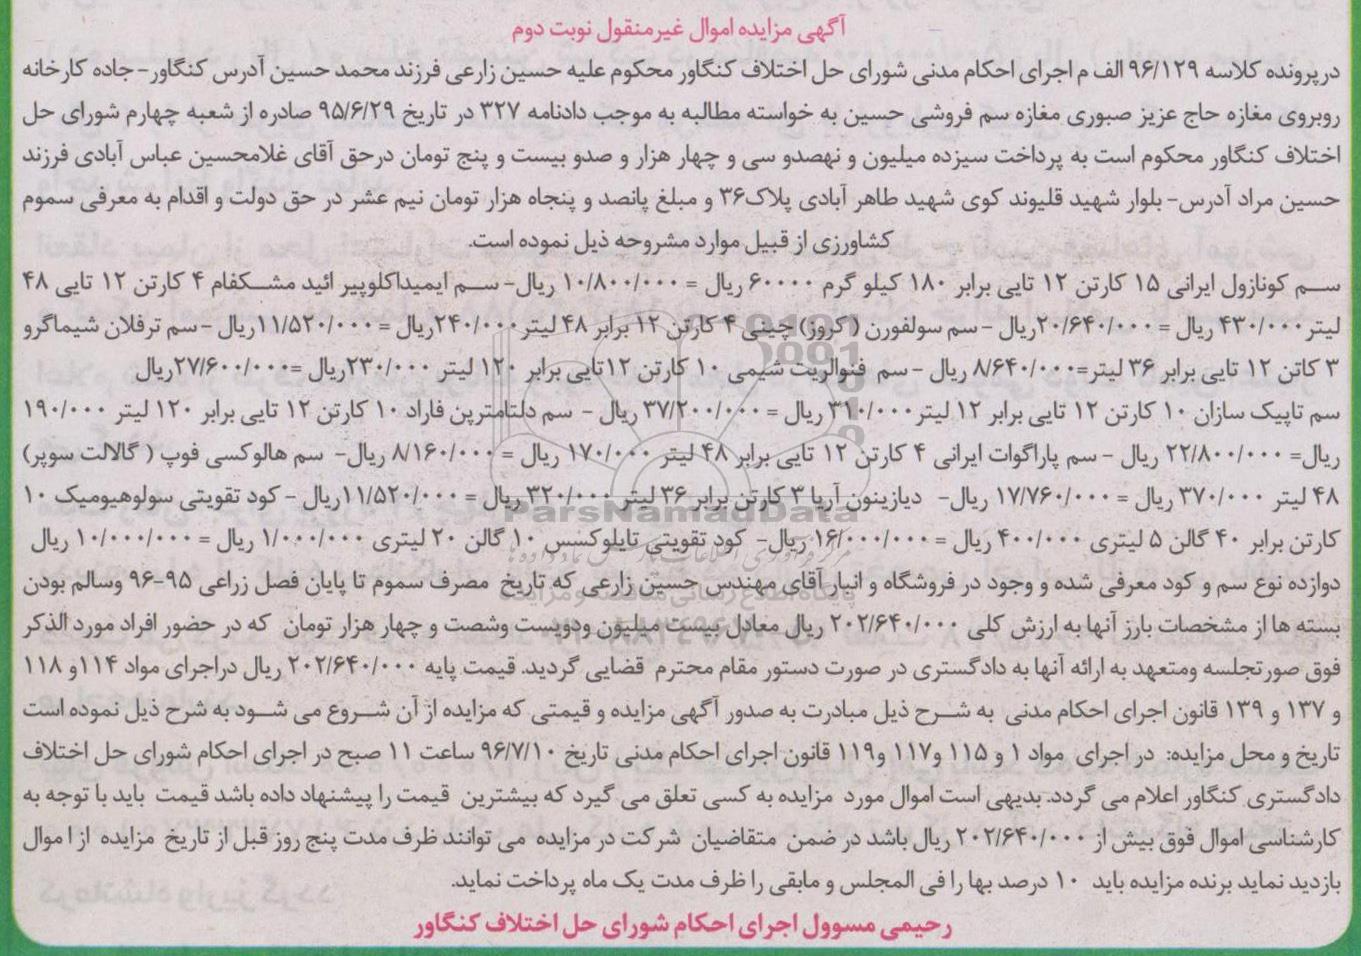 آگهی مزایده اموال غیرمنقول نوبت دوم
درپرونده کلاسه ۹۶/۱۲۹ الف م اجرای احکام مدنی شورای حل اختلاف کنگاور محکوم علیه حسین زارعی فرزند محمد حسین آدرس کنگاور - جاده کارخانه
روبروی مغازه حاج عزیز صبوری مغازه سم فروشی حسین به خواسته مطالبه به موجب دادنامه ۳۲۷ در تاریخ ۹۵/۶/۲۹ صادره از شعبه چهارم شورای حل
اختلاف کنگاور محکوم است به پرداخت سیزده میلیون و نهصدو سی و چهار هزار و صدو بیست و پنج تومان درحق آقای غلامحسین عباس آبادی فرزند
حسین مراد آدرس- بلوار شهید قلیوند کوی شهید طاهر آبادی پلاک۳۶ و مبلغ پانصد و پنجاه هزار تومان نیم عشر در حق دولت و اقدام به معرفی سموم
کشاورزی از قبیل موارد مشروحه ذیل نموده است.
سم کونازول ایرانی ۱۵ کارتن ۱۲ تایی برابر ۱۸۰ کیلو گرم ۶۰۰۰۰ ریال = ۱۰/۸۰۰/۰۰۰ ریال- سم ایمیداکلوپیر ائید مشکفام ۴ کارتن ۱۲ تایی ۴۸
لیتر ۴۳۰/۰۰۰ ریال = ۲۰/۶۴۰/۰۰۰ریال - سم سولفورن ( کروز) چینی ۴ کارتن ۱۲ برابر ۴۸ لیتر ۲۴۰/۰۰۰ریال = ۱۱/۵۲۰/۰۰۰ریال - سم ترفلان شیماگرو
۳ کاتن ۱۲ تایی برابر ۳۶ لیتر=۸/۶۴۰/۰۰۰ ریال - سم فنوالریت شیمی ۱۰ کارتن ۱۲تایی برابر ۱۲۰ لیتر ۲۳۰/۰۰۰ریال =۲۷/۶۰۰/۰۰۰ریال
سم تاپیک سازان ۱۰ کارتن ۱۲ تایی برابر ۱۲ لیتر ۳۱۰/۰۰۰ ریال = ۳۷/۲۰۰/۰۰۰ ریال - سم دلتامترین فاراد ۱۰ کارتن ۱۲ تایی برابر ۱۲۰ لیتر ۱۹۰/۰۰۰
ریال= ۲۲/۸۰۰/۰۰۰ ریال - سم پاراگوات ایرانی ۴ کارتن ۱۲ تایی برابر ۴۸ لیتر ۱۷۰/۰۰۰ ریال = ۸/۱۶۰/۰۰۰ ریال- سم هالوکسی فوپ ( گالالت سوپر)
۴۸ لیتر ۳۷۰/۰۰۰ ریال = ۱۷/۷۶۰/۰۰۰ ریال- دیازینون آریا ۳ کارتن برابر ۳۶ لیتر ۳۲۰/۰۰۰ ریال = ۱۱/۵۲۰/۰۰۰ریال - کود تقویتی سولوهیومیک ۱۰
کارتن برابر ۴۰ گالن ۵ لیتری ۴۰۰/۰۰۰ ریال = ۱۶/۰۰۰/۰۰۰ ریال- کود تقویتی تایلوکسس ۱۰ گالن ۲۰ لیتری ۱/۰۰۰/۰۰۰ ریال = ۱۰/۰۰۰/۰۰۰ ریال
دوازده نوع سم و کود معرفی شده و وجود در فروشگاه و انبار آقای مهندس حسین زارعی که تاریخ مصرف سموم تا پایان فصل زراعی ۹۵-۹۶ وسالم بودن
بسته ها از مشخصات بارز آنها به ارزش کلی ۲۰۲/۶۴۰/۰۰۰ ریال معادل بیست میلیون ودویست وشصت و چهار هزار تومان که در حضور افراد مورد الذکر
فوق صورتجلسه ومتعهد به ارائه آنها به دادگستری در صورت دستور مقام محترم قضایی گردید. قیمت پایه ۲۰۲/۶۴۰/۰۰۰ ریال دراجرای مواد ۱۱۴و ۱۱۸
و ۱۳۷ و ۱۳۹ قانون اجرای احکام مدنی به شرح ذیل مبادرت به صدور آگهی مزایده و قیمتی که مزایده از آن شروع می شود به شرح ذیل نموده است
تاریخ و محل مزایده: در اجرای مواد ۱ و ۱۱۵ و۱۱۷ و۱۱۹ قانون اجرای احکام مدنی تاریخ ۹۶/۷/۱۰ ساعت ۱۱ صبح در اجرای احکام شورای حل اختلاف
دادگستری کنگاور اعلام می گردد. بدیهی است اموال مورد مزایده به کسی تعلق می گیرد که بیشترین قیمت را پیشنهاد داده باشد قیمت باید با توجه به
کارشناسی اموال فوق بیش از ۲۰۲/۶۴۰/۰۰۰ ریال باشد در ضمن متقاضیان شرکت در مزایده می توانند ظرف مدت پنج روز قبل از تاریخ مزایده از ا موال
بازدید نماید برنده مزایده باید ۱۰ درصد بها را فی المجلس و مابقی را ظرف مدت یک ماه پرداخت نماید.
رحیمی مسوول اجرای احکام شورای حل اختلاف کنگاور
ParsNamadData